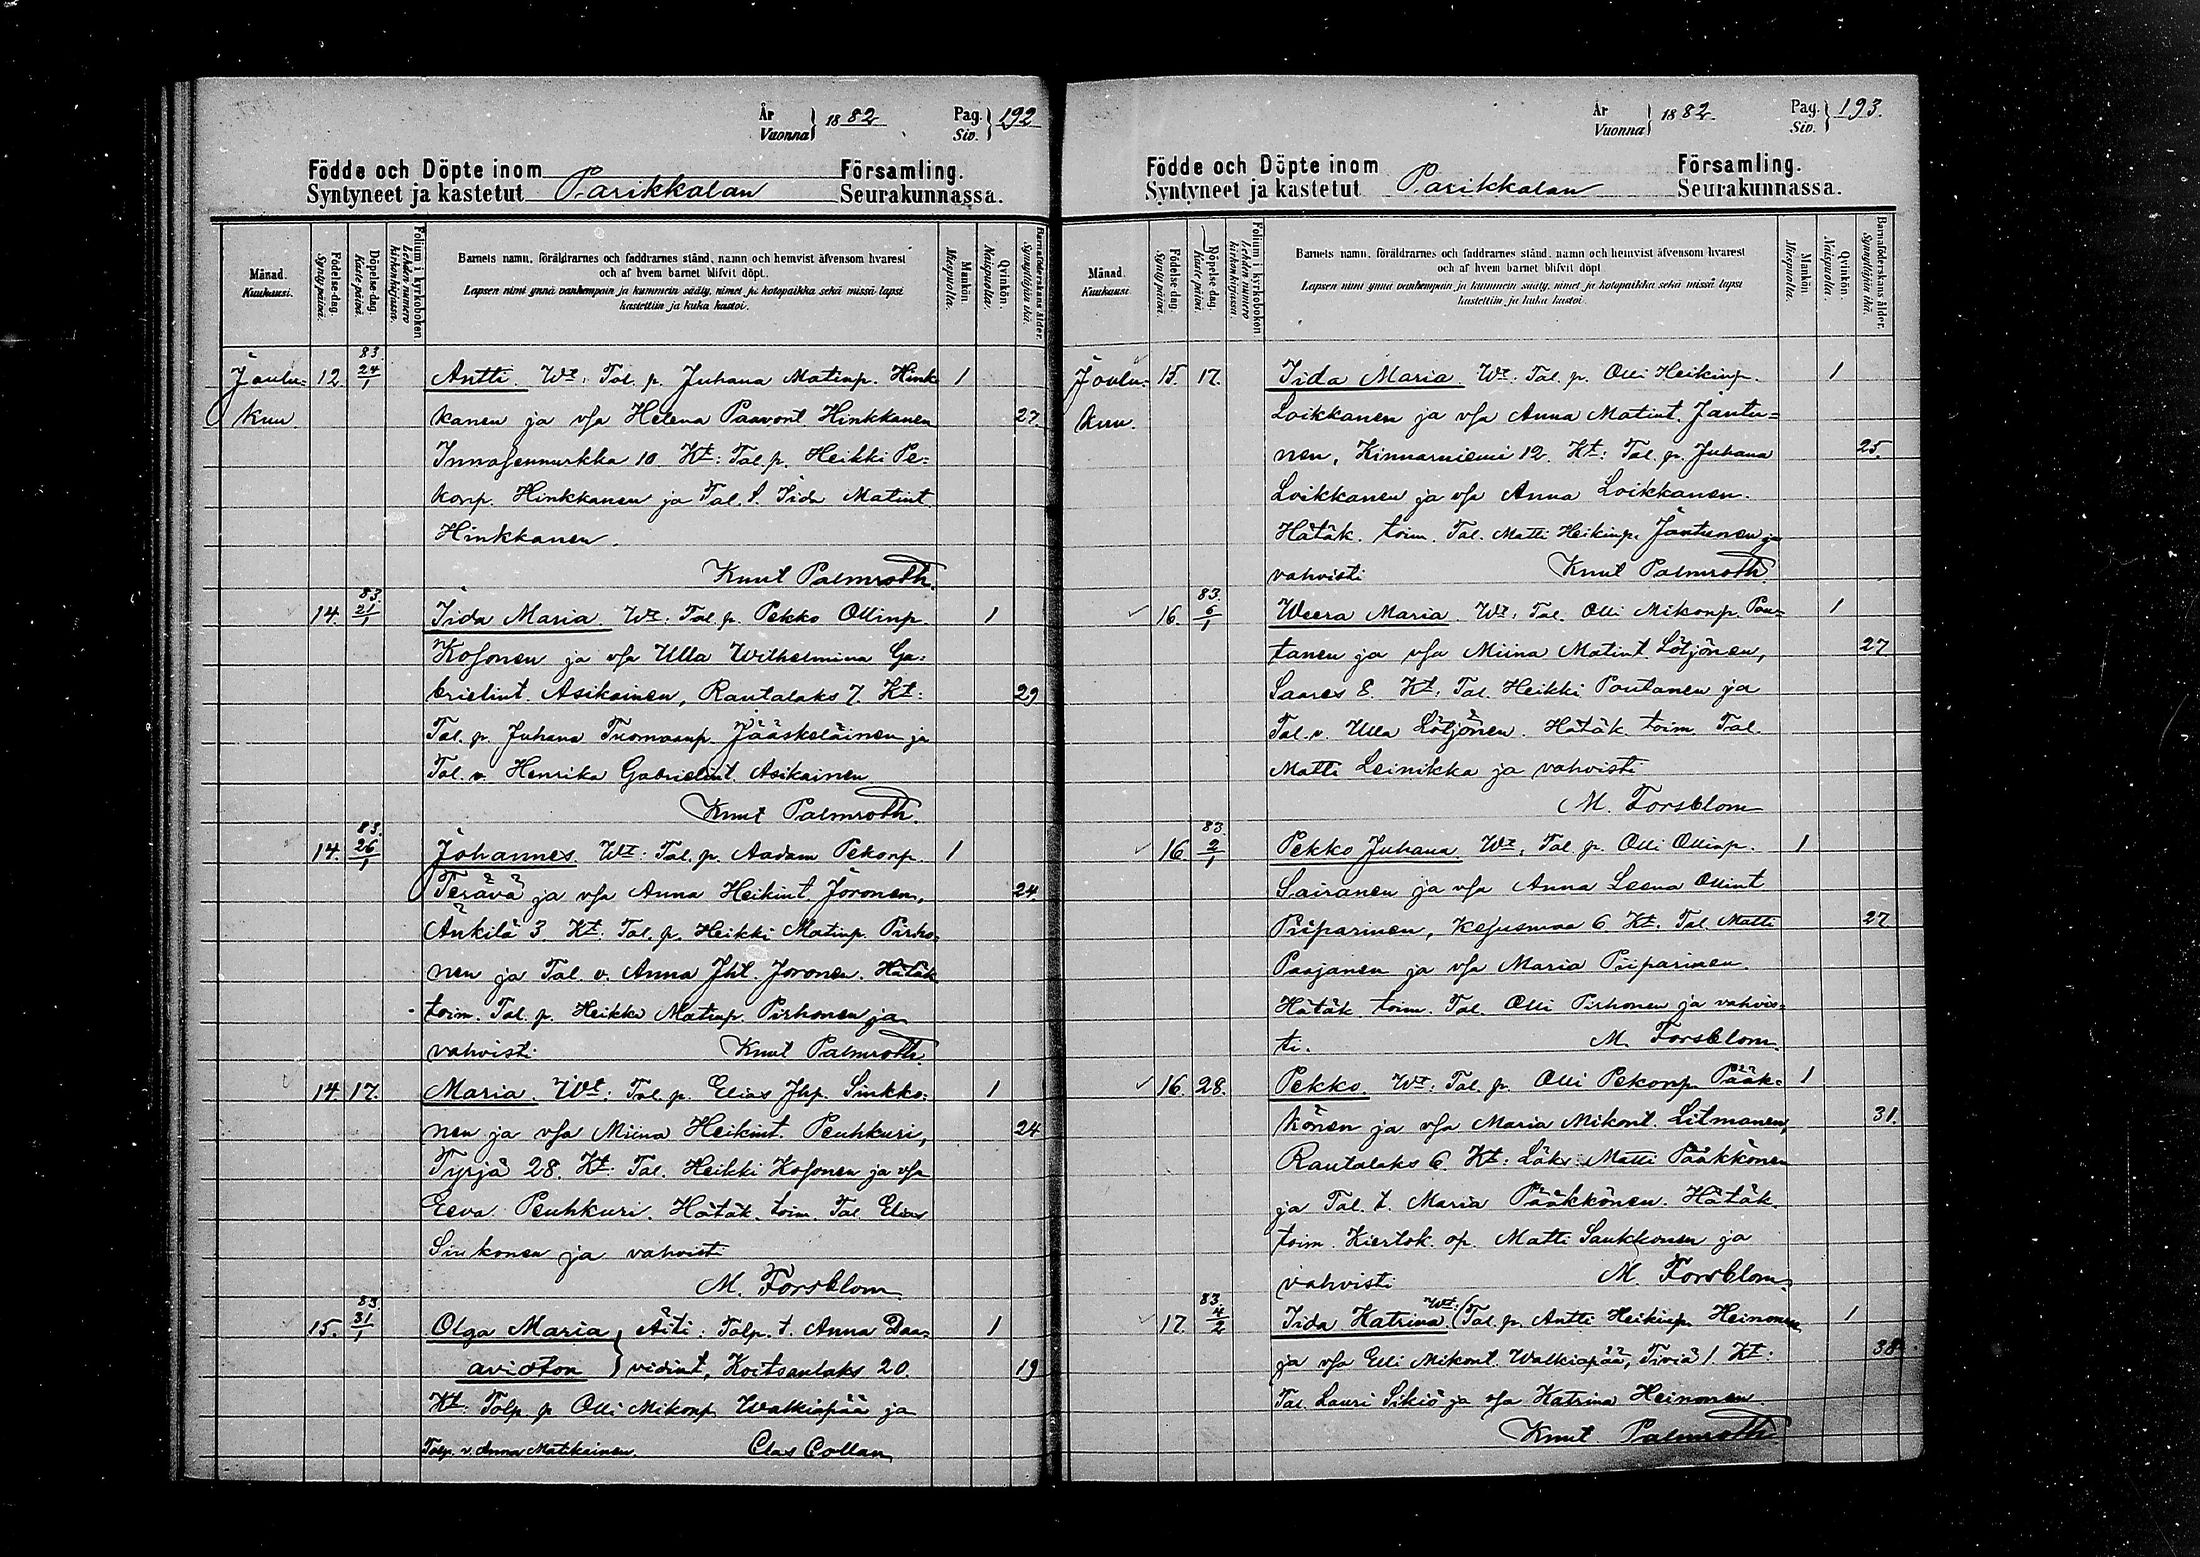 År
Vuonna } 1882 Pag.
Siv. } 192
Födde och Döpte inom Församling.
Syntyneet ja kastetut Parikkalan Seurakunnassa.
Månad.
Kuukausi.
Födelse-dag.
Synty päivä.
Döpelse-dag.
Kaste-päivä.
Folium i kyrkoboken
Lehden numero
kirkonkirjassa.
Barnets namn, föräldrarnes och faddrarnes stånd, namn och hemvist äfvensom hvarest
och af hvem barnet blifvit döpt.
Lapsen nimi ynnä vanhempain ja kummein sääty, nimet ja kotopaikka sekä missä lapsi
kastettiin ja kuka kastoi.
Mankön.
Miespuolia.
Qvinkön.
Naispuolia.
Barnaföderskans ålder.
Synnyttäjän ikä.
83.
Joulu- 12. 24/1 Antti. Wt: Tal. p. Juhana Matinp. Hink 1
kuu kanen ja vsa Helena Paavont. Hinkkanen 27.
Innasennurkka 10. Kt: Tal. p. Heikki Pe-
konp. Hinkkanen ja Tal. t. Iida Matint.
Hinkkanen.
Knut Palmroth.
83.
14. 21/1 Iida Maria. Wt: Tal. p. Pekko Ollinp. 1
Kosonen ja vsa Ulla Wilhelmina Ga-
brielint. Asikainen, Rautalaks 7. Kt: 29
Tal. p. Juhana Tuomaanp. Jääskeläinen ja
Tal. v. Henrika Gabrielint. Asikainen
Knut Palmroth.
83.
14. 26/1 Johannes. Wt: Tal. p. Aadam Pekonp. 1
Terävä ja vsa Anna Heikint. Joronen, 24.
Änkilä 3. Kt: Tal. p. Heikki Matinp. Pirho-
nen ja Tal. v. Anna Jht. Joronen. Hätäk.
toim. Tal. p. Heikki Matinp. Pirhonen ja
vahvisti Knut Palmroth.
14. 17. Maria. Wt: Tal. p. Elias Jhp. Sinkko- 1
nen ja vsa Miina Heikint. Peuhkuri, 24
Tyrjä 28. Kt: Tal. Heikki Kosonen ja vsa
Eeva Peuhkuri. Hätäk. toim. Tal. Elias
Sinkonen ja vahvisti
M. Forsblom
83.
15. 31/1 Olga Maria } Äiti: Talp. t. Anna Daa- 1
avioton } vidint, Koitsanlaks 20. 19
Kt: Talp. p Olli Mikonp. Walkiapää ja
Talp. v. Anna Matikainen. Clas Collan
År
Vuonna } 1882. Pag.
Siv. } 193.
Födde och Döpte inom Församling.
Syntyneet ja kastetut Parikkalan Seurakunnassa.
Månad.
Kuukausi.
Födelse-dag.
Synty päivä.
Döpelse-dag.
Kaste-päivä.
Folium i kyrkoboken
Lehden numero
kirkonkirjassa
Barnets namn, föräldrarnes och faddrarnes stånd, namn och hemvist äfvensom hvarest
och af hvem barnet blifvit döpt
Lapsen nimi ynnä vanhempain ja kummein sääty, nimet ja kotopaikka sekä missä lapsi
kastettiin ja kuka kastoi.
Mankön.
Miespuolia.
Qvinkön.
Naispuolia.
Barnaföderskans ålder.
Synnyttäjän ikä.
Joulu- 15. 17. Iida Maria. Wt: Tal. p. Olli Heikinp. 1
kuu. Loikkanen ja vsa Anna Matint. Jantu-
nen, Kinnarniemi 12. Kt: Tal. p. Juhana 25.
Loikkanen ja vsa Anna Loikkanen.
Hätäk. toim. Tal. Matti Heikinp. Jantunen ja
vahvisti Knut Palmroth.
83.
16. 6/1 Weera Maria. Wt: Tal. Olli Mikonp. Pou- 1
tanen ja vsa Miina Matint. Lötjönen, 27
Saares 8. Kt: Tal. Heikki Poutanen ja
Tal. v. Ulla Lötjönen. Hätäk. toim. Tal.
Matti Leinikka ja vahvisti
M. Forsblom
83.
16 2/1 Pekko Juhana. Wt: Tal. p. Olli Ollinp. 1
Sairanen ja vsa Anna Leena Ollint
Piiparinen, Kesusmaa 6. Kt: Tal. Matti 27
Paajanen ja vsa Maria Piiparinen.
Hätäk. toim. Tal. Olli Pirhonen ja vahvis-
ti. M. Forsblom.
16. 28. Pekko. Wt: Tal. p. Olli Pekonp. Pääk- 1
könen ja vsa Maria Mikont. Litmanen, 31.
Rautalaks 6. Kt: Läks. Matti Pääkkönen
ja Tal. t. Maria Pääkkönen. Hätäk.
toim. Kiertok. op. Matti Saukkonen ja
vahvisti M. Forsblom.
83.
17. 4/2 Iida Katrina. Wt: (Tal. p. Antti Heikinp. Heinonen 1
ja vsa Elli Mikont. Walkiapää, Tiviä 1. Kt: 38.
Tal. Lauri Sikiö ja vsa Katrina Heinonen.
Knut Palmroth.